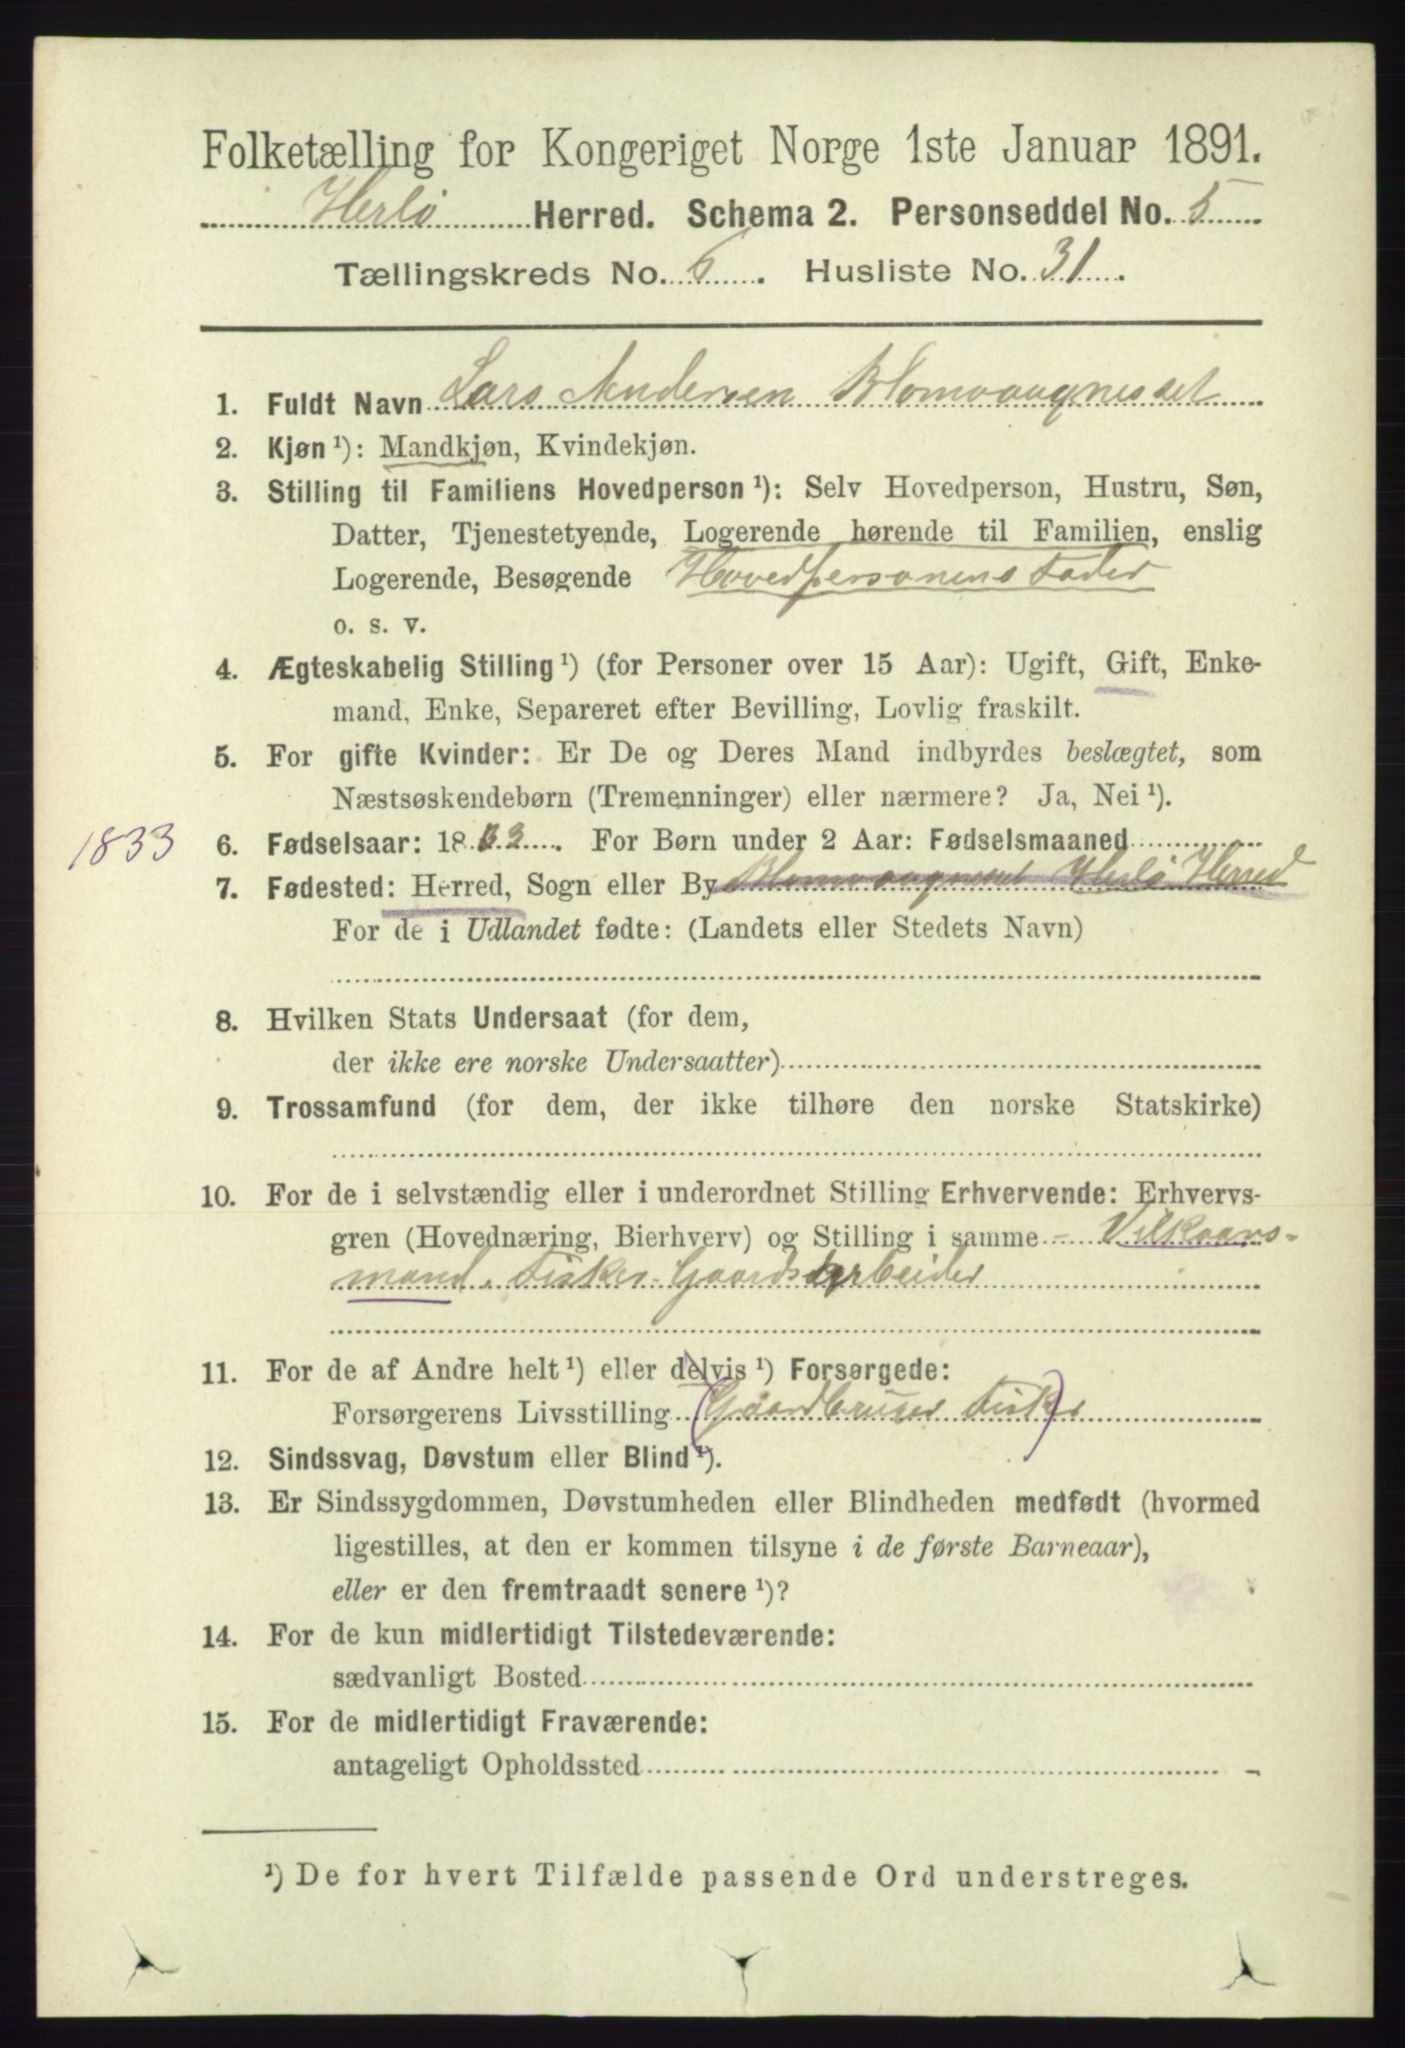 Folketælling for Kongeriget Norge 1ste Januar 1891.
Herlö Herred. Schema 2. Personseddel No. 5
Tællingskreds No. 6. Husliste No. 31.
1. Fuldt Navn Lars Andersen Blomvaagnesset
2. Kjøn ¹): Mandkjøn, Kvindekjøn.
3. Stilling til Familiens Hovedperson ¹): Selv Hovedperson, Hustru, Søn,
Datter, Tjenestetyende, Logerende hørende til Familien, enslig
Logerende, Besøgende Hovedpersonens Fader
o. s. v.
4. Ægteskabelig Stilling ¹) (for Personer over 15 Aar): Ugift, Gift, Enke-
mand, Enke, Separeret efter Bevilling, Lovlig fraskilt.
5. For gifte Kvinder: Er De og Deres Mand indbyrdes beslægtet, som
Næstsøskendebørn (Tremenninger) eller nærmere? Ja, Nei ¹).
1833 6. Fødselsaar: 1833. For Børn under 2 Aar: Fødselsmaaned
7. Fødested: Herred, Sogn eller By Blomvaagnesset Herlö Herred
For de i Udlandet fødte: (Landets eller Stedets Navn)
8. Hvilken Stats Undersaat (for dem,
der ikke ere norske Undersaatter)
9. Trossamfund (for dem, der ikke tilhøre den norske Statskirke)
10. For de i selvstændig eller i underordnet Stilling Erhvervende: Erhvervs-
gren (Hovednæring, Bierhverv) og Stilling i samme - Vilkaars-
mand. Fisker- Gaardsarbeider
11. For de af Andre helt ¹) eller delvis ¹) Forsørgede:
Forsørgerens Livsstilling (Gaardbruger Fisker)
12. Sindssvag, Døvstum eller Blind ¹).
13. Er Sindssygdommen, Døvstumheden eller Blindheden medfødt (hvormed
ligestilles, at den er kommen tilsyne i de første Barneaar),
eller er den fremtraadt senere ¹)?
14. For de kun midlertidigt Tilstedeværende:
sædvanligt Bosted
15. For de midlertidigt Fraværende:
antageligt Opholdssted
¹) De for hvert Tilfælde passende Ord understreges.